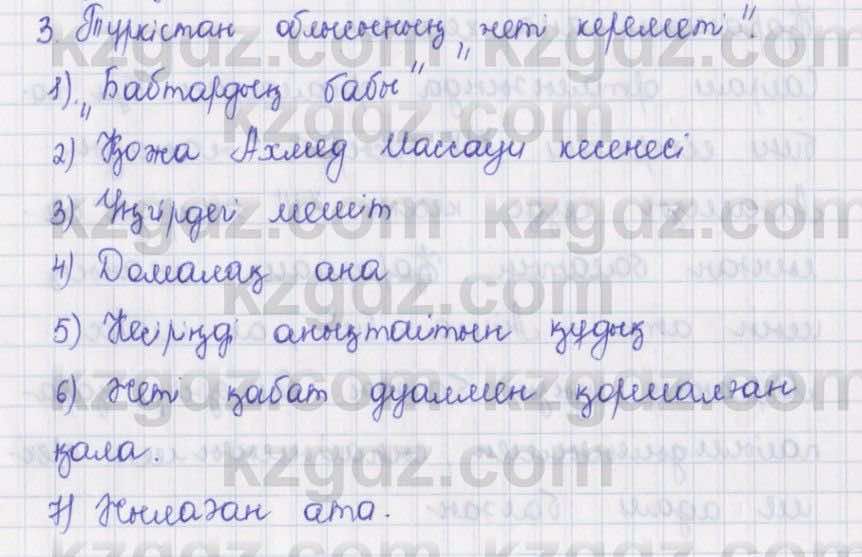 3. Түркістан облысының „жеті кереметі".
1). „Бабтардың бабы"
2) Қожа Ахмед Иассауи кесенесі
3) Үңгірдегі мешіт
4) Домалақ ана
5) Несіріңді анықтайтын құдық
6) Жеті қабат дуалмен қоршалған
қала.
7) Жылаған ата.
kzgdz.com